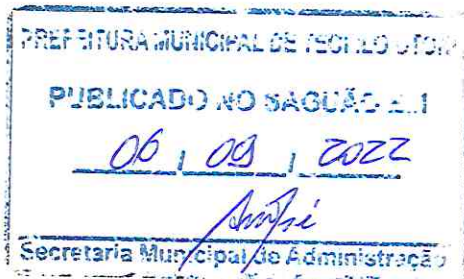 PREFEITURA MUNICIPAL DE TEÓFILO OTONI
PUBLICADO NO SAGUÃO EM
06 / 09 / 2022
André
Secretaria Municipal de Administração